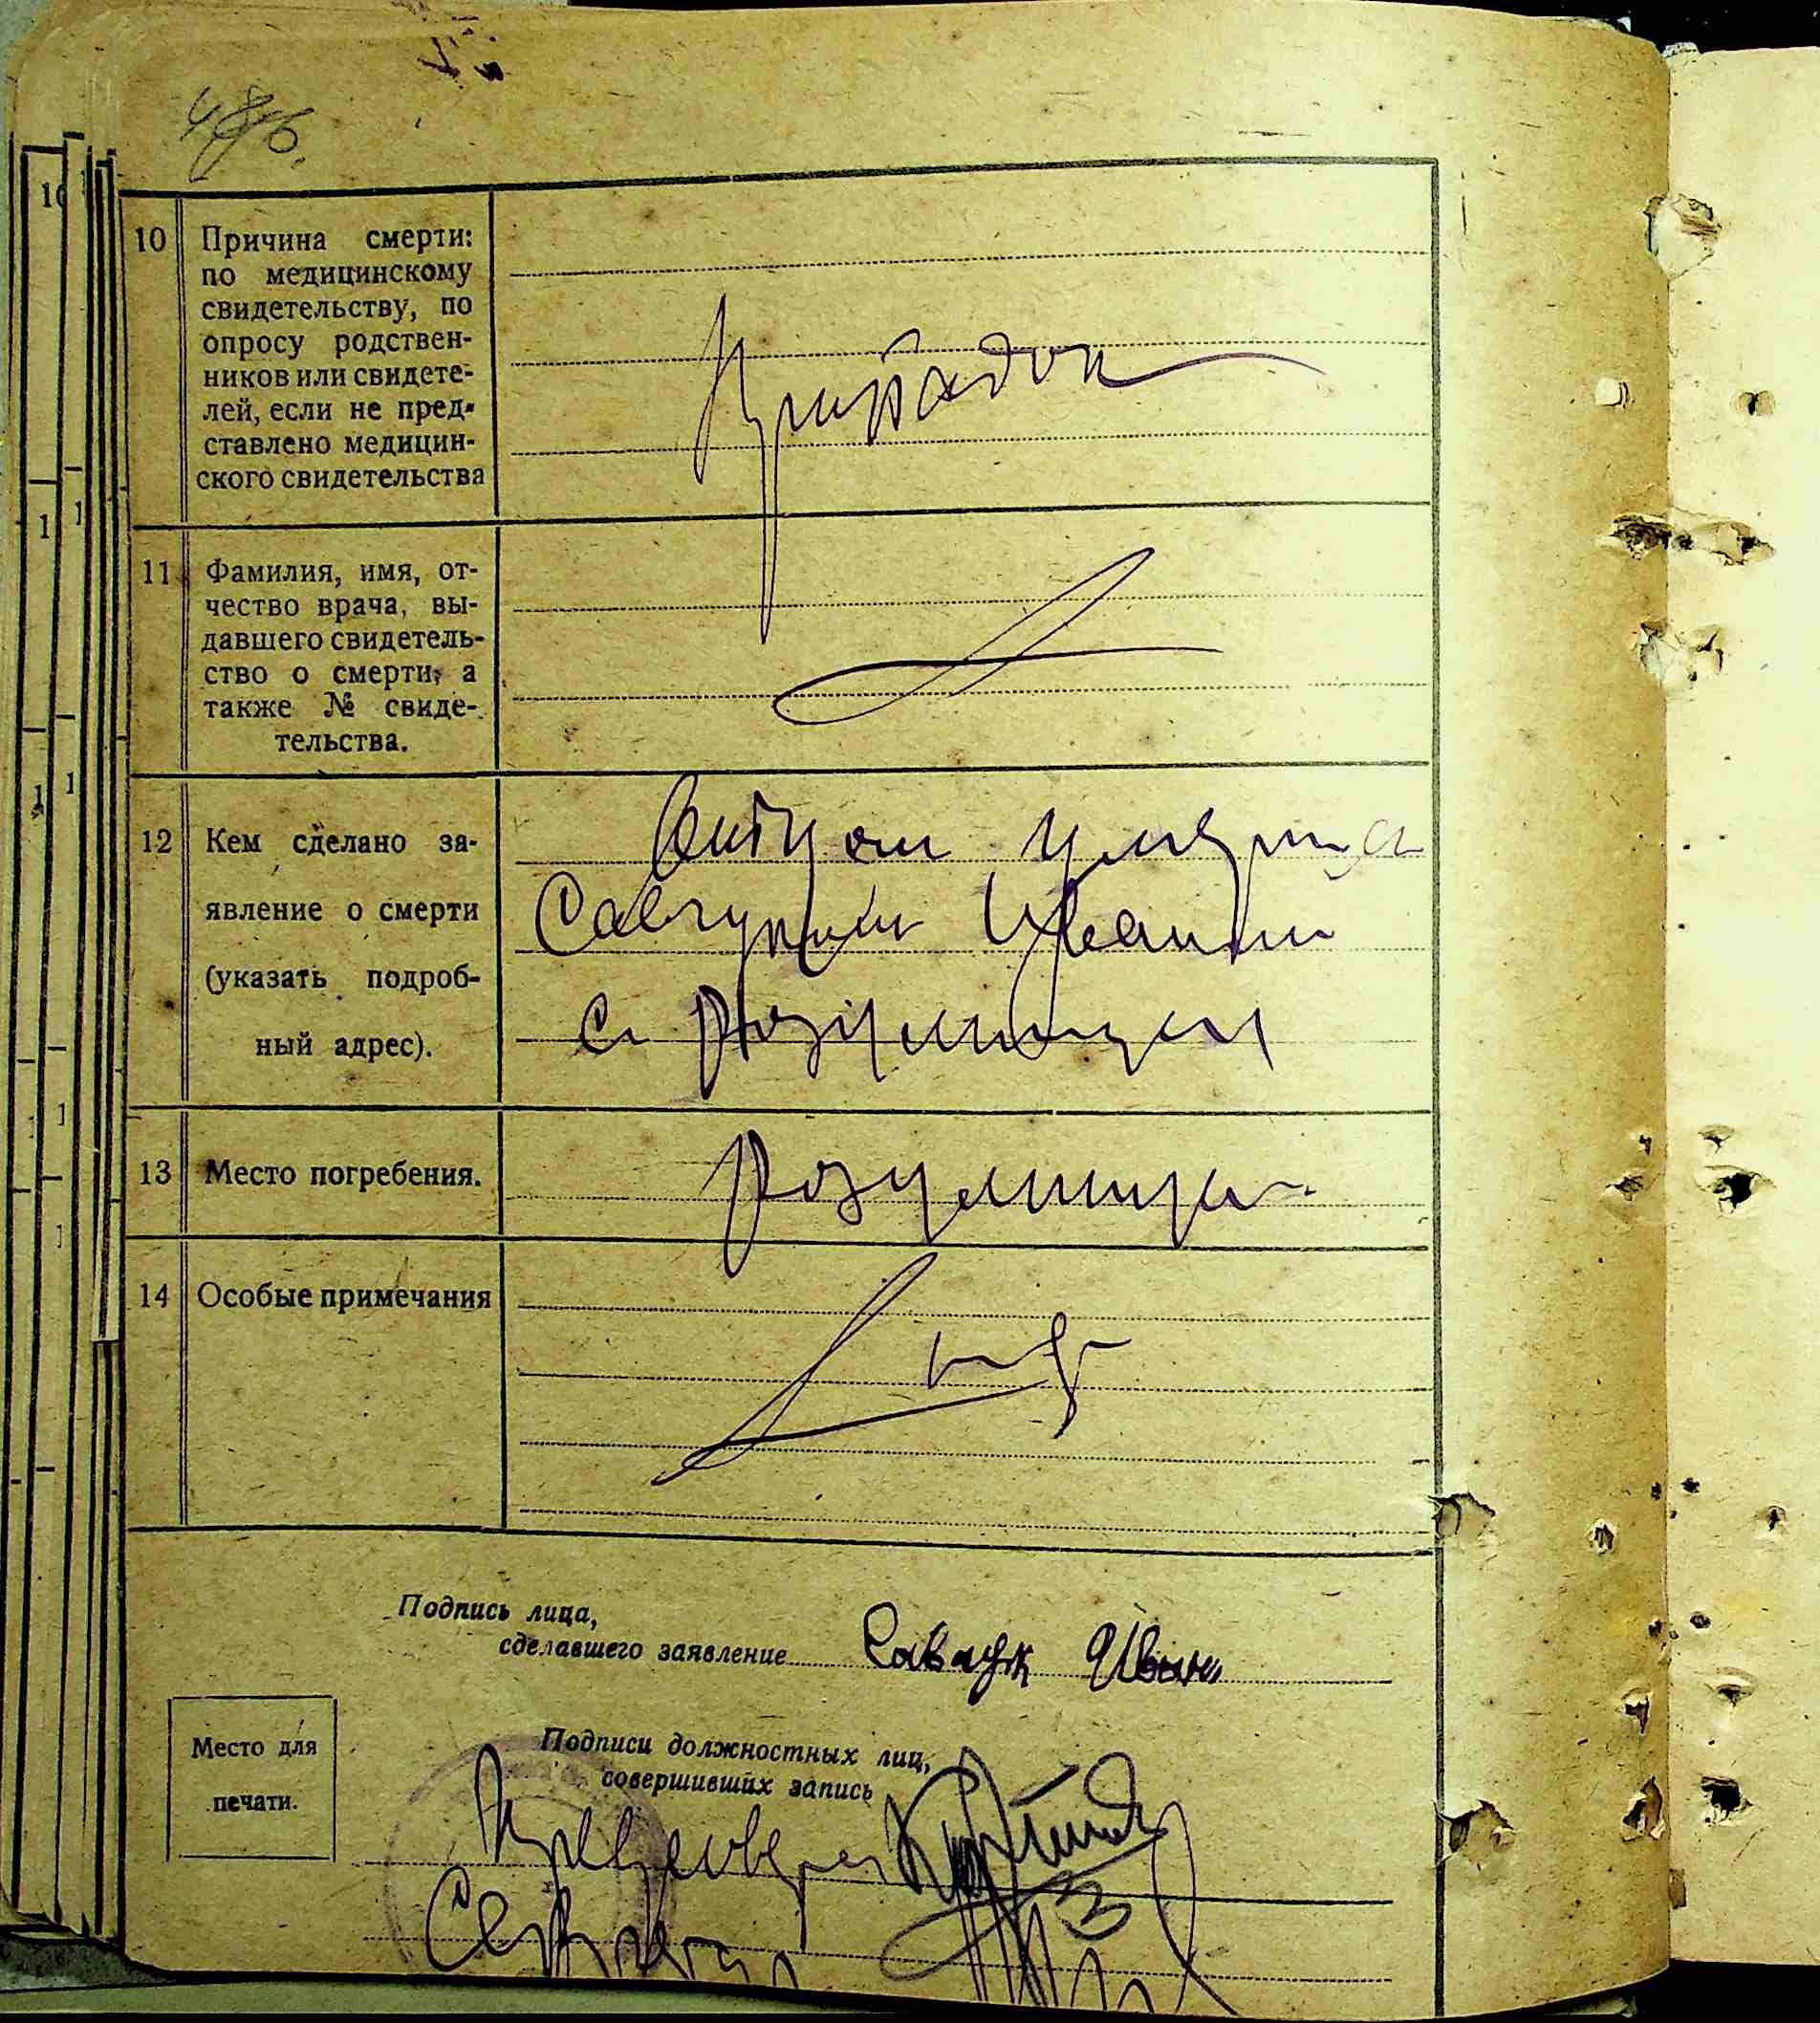 486.
10 Причина смерти:
по медицинскому
свидетельству, по
опросу родствен-
ников или свидете-
лей, если не пред-
ставлено медицин-
ского свидетельства
Припадок
11 Фамилия, имя, от-
чество врача, вы-
давшего свидетель-
ство о смерти, а
также № свиде-
тельства.
12 Кем сделано за-
явление о смерти
(указать подроб-
ный адрес).
Савчуком Иваном
с
13 Место погребения.
14 Особые примечания
Подпись лица,
сделавшего заявление Савчук Иван
Место для
печати.
Подписи должностных лиц,
совершивших запись